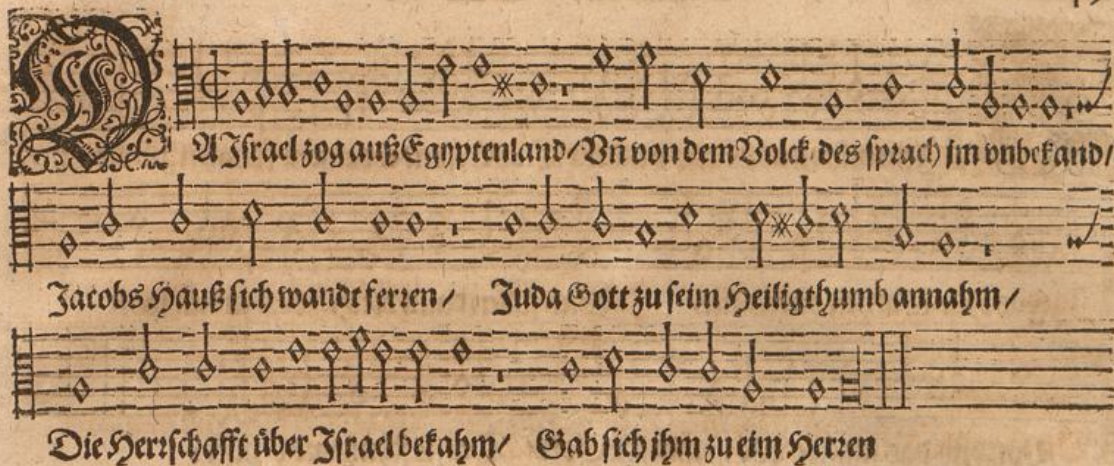 DA Jſrael zog auß Egyptenland/ Vn̄ von dem Volck des ſprach jm vnbekand/
Jacobs Hauß ſich wandt ferren/ Juda Gott zu ſeim Heiligthumb annahm/
Die Herꝛſchafft über Jſrael bekahm/ Gab ſich jhm zu eim Herꝛen